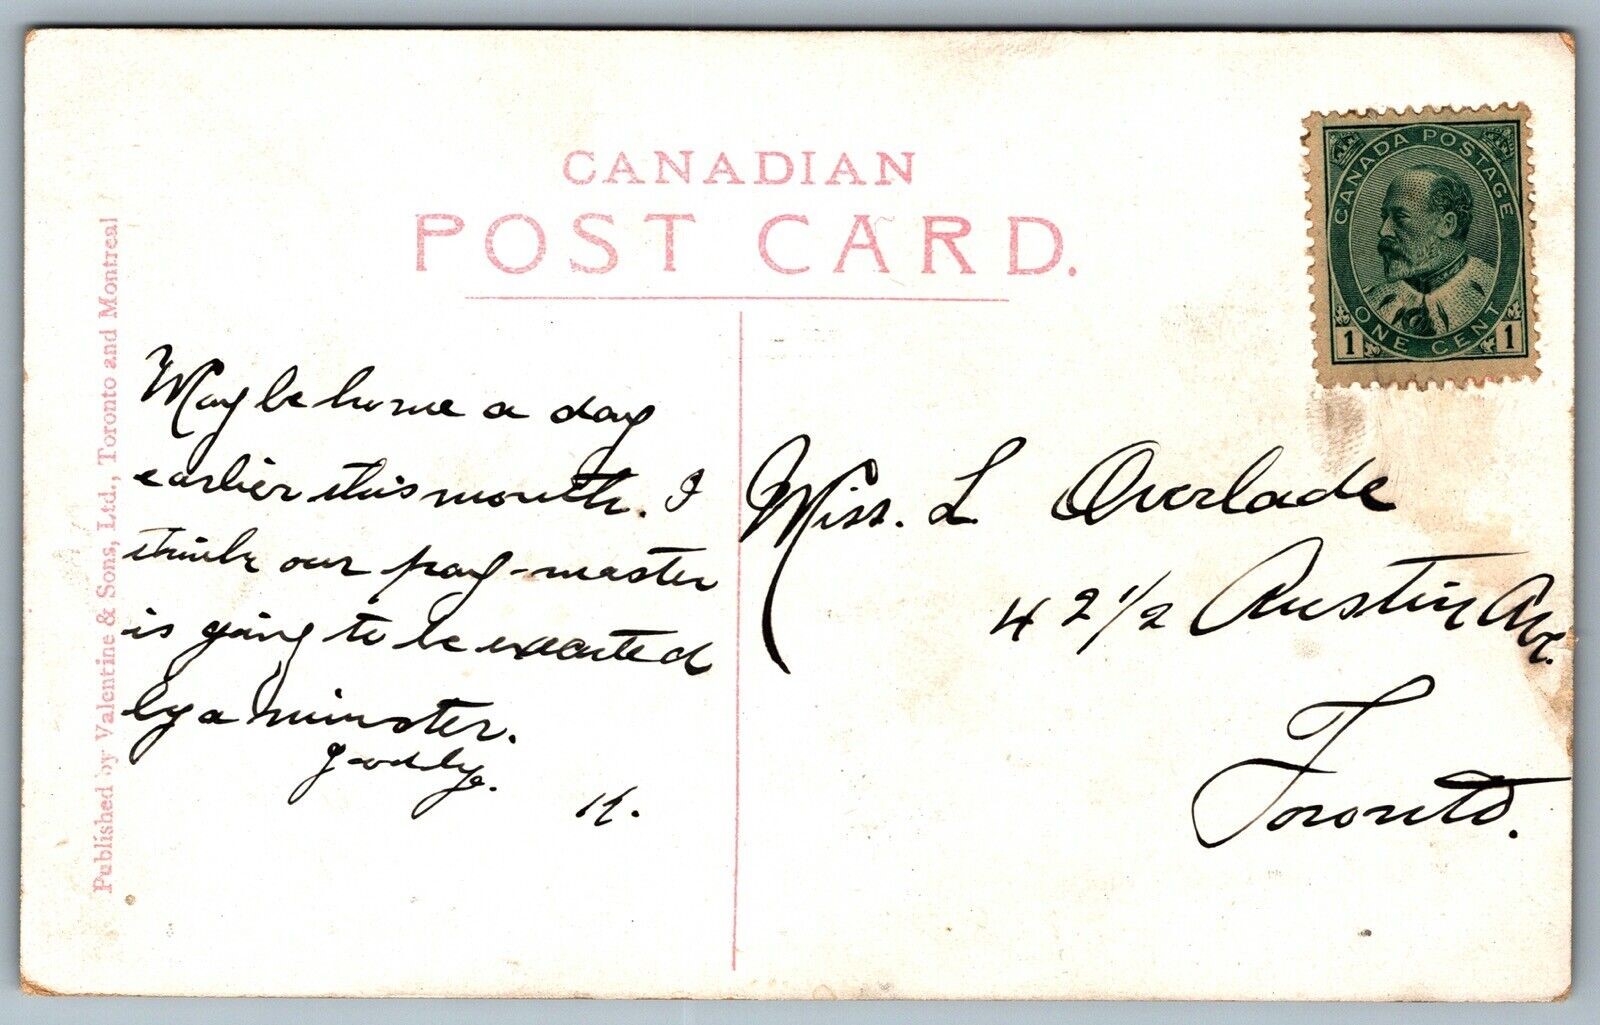 CANADIAN
POST CARD.
Published by Valentine & Sons, Ltd., Toronto and Montreal
CANADA POSTAGE
ONE CENT
1 1
May be home a day
earlier this month. I
think our pay-master
is going to be
by a minister.
goodbye.
K.
Miss. L Overlade
42 1/2 Austin Ave.
Toronto.